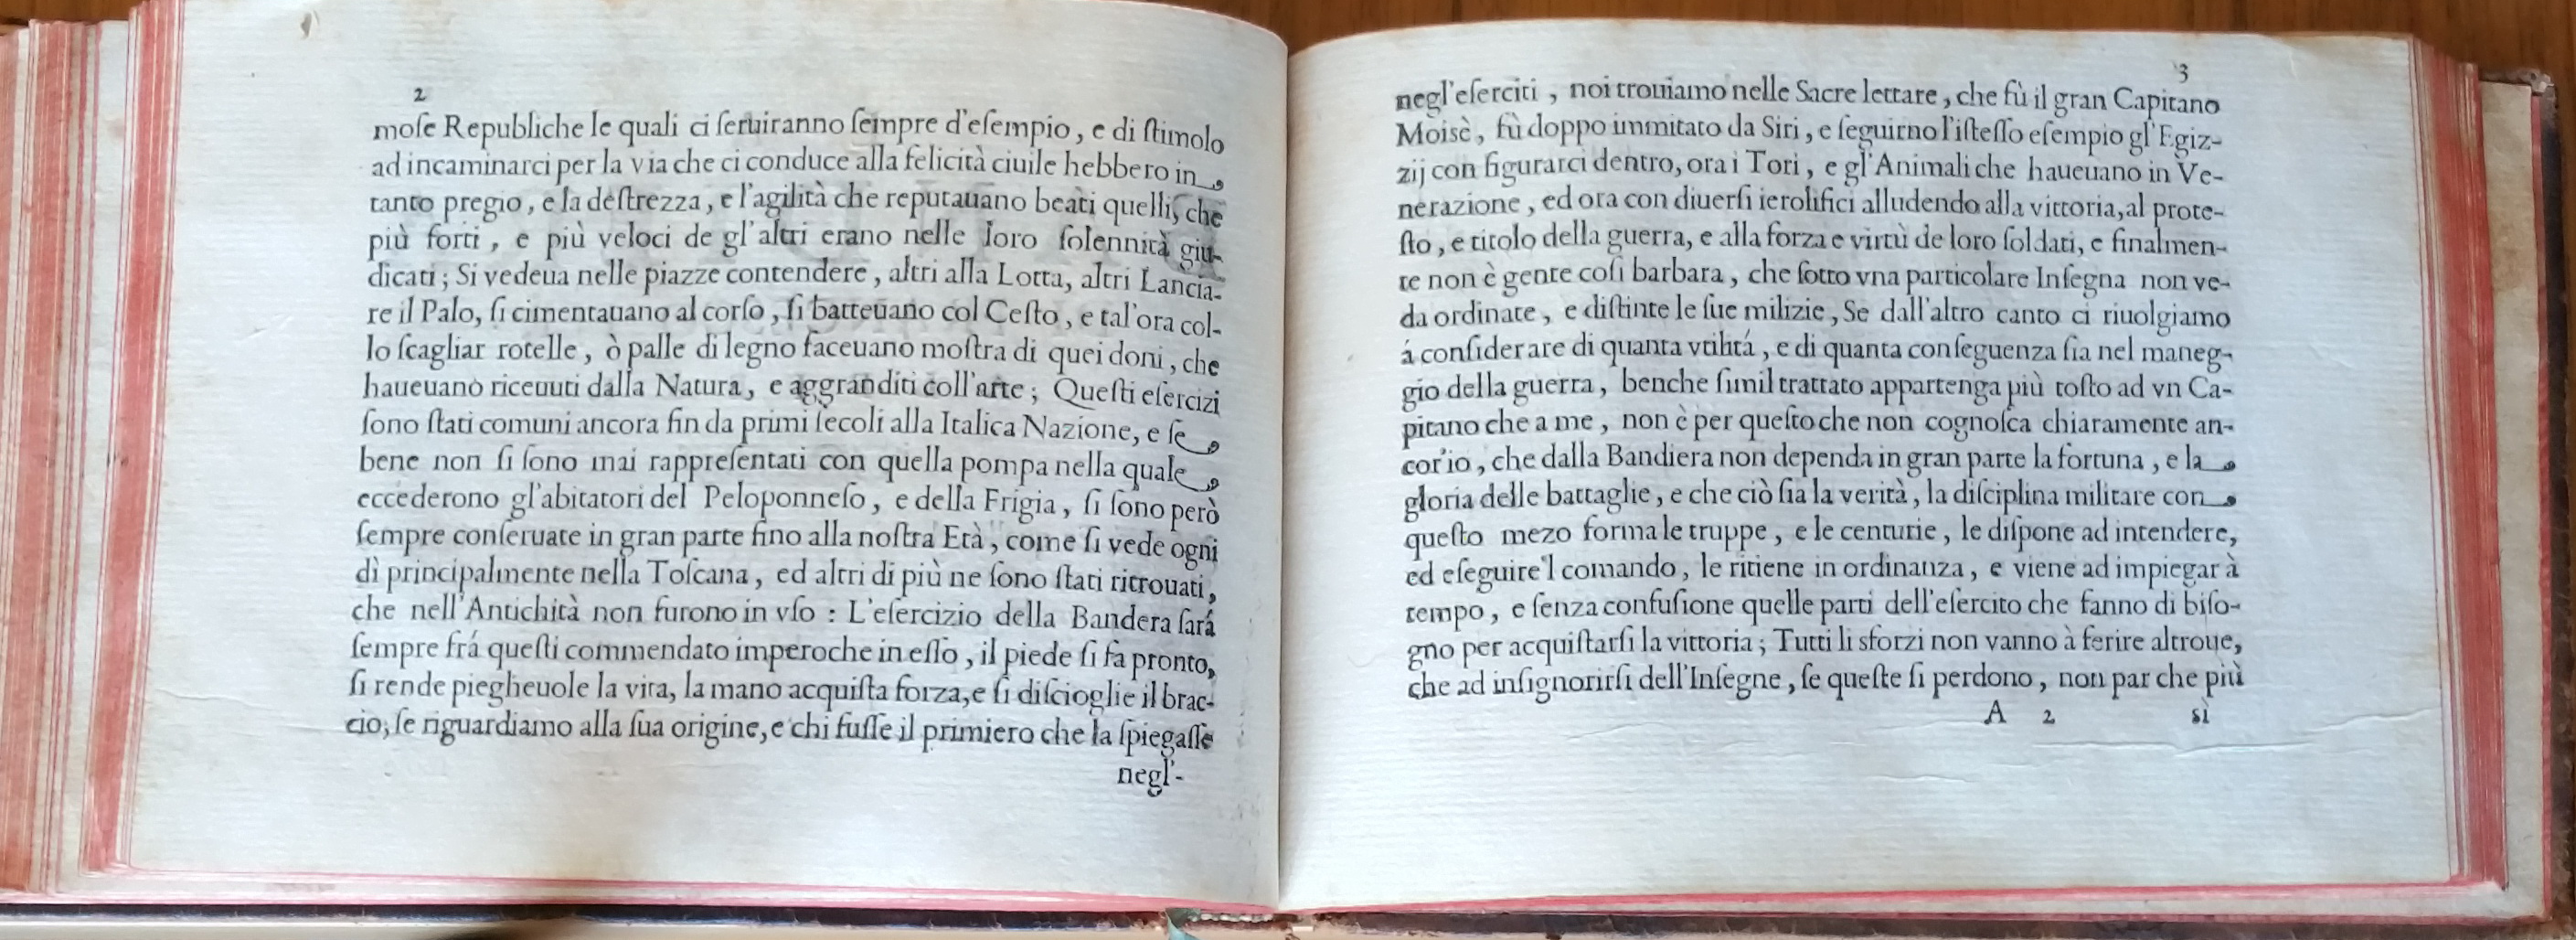 2
moſe Republiche le quali ci ſeruiranno ſempre d'eſempio, e di ſtimolo
ad incaminarci per la via che ci conduce alla felicità ciuile hebbero in
tanto pregio, e la deſtrezza, e l'agilità che reputauano beati quelli, che
più forti, e più veloci de gl'altri erano nelle loro ſolennità giu-
dicati; Si vedeua nelle piazze contendere, altri alla Lotta, altri Lancia-
re il Palo, ſi cimentauano al corſo, ſi batteuano col Ceſto, e tal'ora col-
lo ſcagliar rotelle, ò palle di legno faceuano moſtra di quei doni, che
haueuano riceuuti dalla Natura, e aggranditi coll'arte; Queſti eſercizi
ſono ſtati comuni ancora fin da primi ſecoli alla Italica Nazione, e ſe
bene non ſi ſono mai rappreſentati con quella pompa nella quale
eccederono gl'abitatori del Peloponneſo, e della Frigia, ſi ſono però
ſempre conſeruate in gran parte fino alla noſtra Età, come ſi vede ogni
dì principalmente nella Toſcana, ed altri di più ne ſono ſtati ritrouati,
che nell'Antichità non furono in vſo : L'eſercizio della Bandera ſará
ſempre frá queſti commendato imperoche in eſſo, il piede ſi fa pronto,
ſi rende piegheuole la vita, la mano acquiſta forza, e ſi diſcioglie il brac-
cio, ſe riguardiamo alla ſua origine, e chi fuſſe il primiero che la ſpiegaſſe
negl'-
3
negl'eſerciti, noi trouiamo nelle Sacre lettare, che fù il gran Capitano
Moisè, fù doppo immitato da Siri, e ſeguirno l'iſteſſo eſempio gl'Egiz-
zij con figurarci dentro, ora i Tori, e gl'Animali che haueuano in Ve-
nerazione, ed ora con diuerſi ierolifici alludendo alla vittoria, al prote-
ſto, e titolo della guerra, e alla forza e virtù de loro ſoldati, e finalmen-
te non è gente coſi barbara, che ſotto vna particolare Inſegna non ve-
da ordinate, e diſtinte le ſue milizie, Se dall'altro canto ci riuolgiamo
á conſiderare di quanta vtilitá, e di quanta conſeguenza ſia nel maneg-
gio della guerra, benche ſimil trattato appartenga più toſto ad vn Ca-
pitano che a me, non è per queſto che non cognoſca chiaramente an-
cor'io, che dalla Bandiera non dependa in gran parte la fortuna, e la
gloria delle battaglie, e che ciò ſia la verità, la diſciplina militare con
queſto mezo forma le truppe, e le centurie, le diſpone ad intendere,
ed eſeguire'l comando, le ritiene in ordinanza, e viene ad impiegar à
tempo, e ſenza confuſione quelle parti dell'eſercito che fanno di biſo-
gno per acquiſtarſi la vittoria; Tutti li sforzi non vanno à ferire altroue,
che ad inſignorirſi dell'Inſegne, ſe queſte ſi perdono, non par che più
A 2 sì